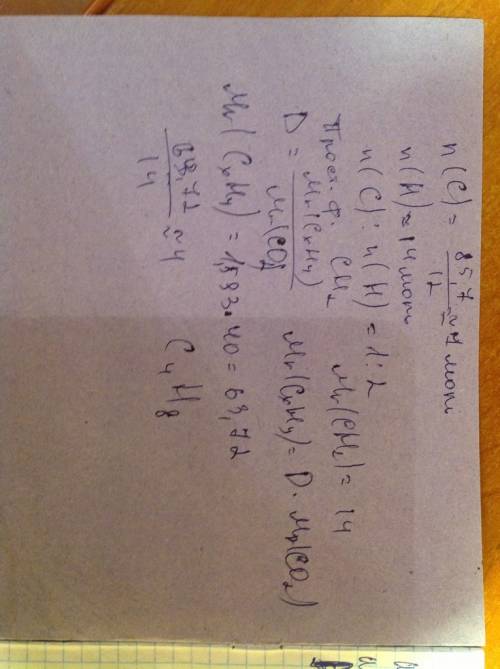 n(C) = 85,7 / 12 ≈ 7 моль
n(H) = 14 моль
n(C) : n(H) = 1 : 2
Прост. ф. CH₂ Mr(CH₂) = 14
D = Mr(CxHy) / Mr(CO₂) Mr(CxHy) = D · Mr(CO₂)
Mr(CxHy) = 1,593 · 40 = 63,72
63,72 / 14 ≈ 4 C₄H₈